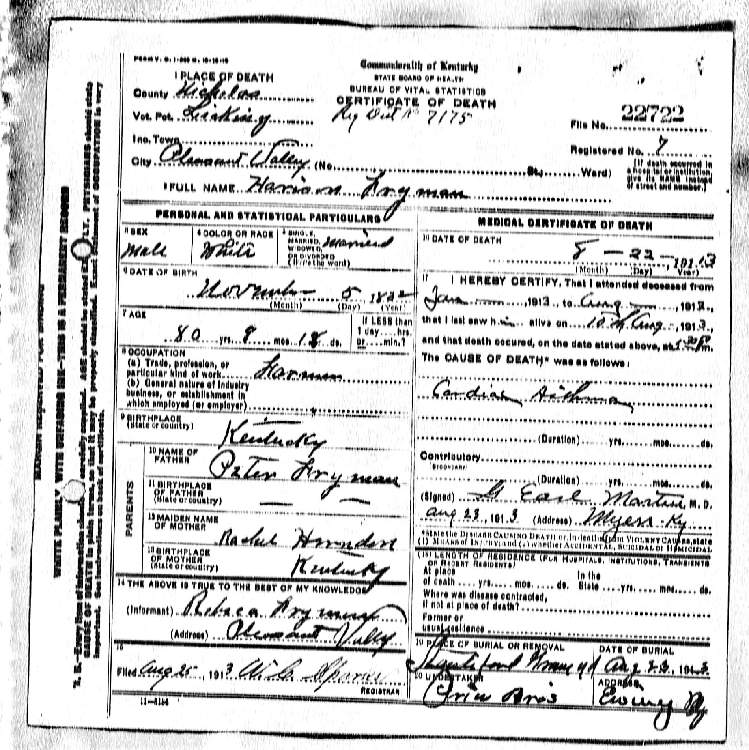 Commonwealth of Kentucky
STATE BOARD OF HEALTH
BUREAU OF VITAL STATISTICS
CERTIFICATE OF DEATH
1 PLACE OF DEATH
County Nicholas
Vot. Pct. Licking Reg Dist No 7175
Inc. Town
City Pleasant Valley (No. St., Ward)
File No. 22722
Registered No. 7
(If death occurred in a hospital or institution, give its NAME instead of street and number.)
2 FULL NAME Harrison Fryman
PERSONAL AND STATISTICAL PARTICULARS
3 SEX Male
4 COLOR OR RACE White
5 SINGLE, MARRIED, WIDOWED, OR DIVORCED (Write the word) Married
6 DATE OF BIRTH
November 5 1832
(Month) (Day) (Year)
7 AGE
80 yrs. 8 mos. 18 ds.
If LESS than 1 day....hrs. or....min.?
8 OCCUPATION
(a) Trade, profession, or particular kind of work Farmer
(b) General nature of industry business, or establishment in which employed (or employer)
9 BIRTHPLACE
(State or country) Kentucky
PARENTS
10 NAME OF FATHER Peter Fryman
11 BIRTHPLACE OF FATHER
(State or country) — —
12 MAIDEN NAME OF MOTHER Rachel Herndon
13 BIRTHPLACE OF MOTHER
(State or country) Kentucky
14 THE ABOVE IS TRUE TO THE BEST OF MY KNOWLEDGE
(Informant) Rebeca Fryman
(Address) Pleasant Vally
15
Filed Aug 25 1913
REGISTRAR
MEDICAL CERTIFICATE OF DEATH
16 DATE OF DEATH
8 — 22 — 1913
(Month) (Day) (Year)
17 I HEREBY CERTIFY, That I attended deceased from
Jan 1913 to Aug 1913,
that I last saw him alive on 10th Aug, 1913,
and that death occured, on the date stated above, at m.
The CAUSE OF DEATH* was as follows:
Cardiac Asthma
(Duration) yrs. mos. ds.
Contributory
(SECONDARY)
(Duration) yrs. mos. ds.
(Signed) G Earl Martin M. D.
Aug 23, 1913 (Address) Myers Ky
*State the DISEASE CAUSING DEATH or, in deaths from VIOLENT CAUSES, state (1) MEANS OF INJURY; and (2) whether ACCIDENTAL, SUICIDAL or HOMICIDAL
18 LENGTH OF RESIDENCE (FOR HOSPITALS, INSTITUTIONS, TRANSIENTS OR RECENT RESIDENTS)
At place of death yrs. mos. ds. In the State yrs. mos. ds.
Where was disease contracted, if not at place of death?
Former or usual residence
19 PLACE OF BURIAL OR REMOVAL
DATE OF BURIAL
Aug 23, 1913
20 UNDERTAKER
Bros
ADDRESS
Ewing Ky
11-3184
MARGIN RESERVED FOR BINDING
WRITE PLAINLY, WITH UNFADING INK—THIS IS A PERMANENT RECORD